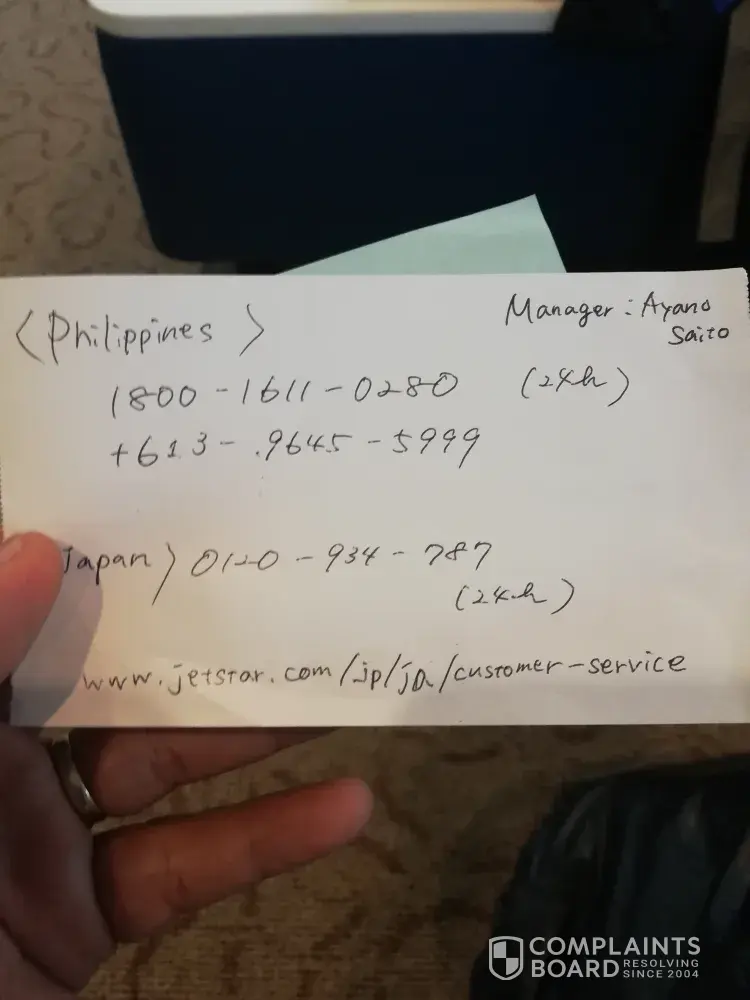 <Philippines>
Manager: Ayano
Saito
1800-1611-0280 (24h)
+613-.9645-5999
Japan> 0120-934-787
(24h)
www.jetstar.com/jp/ja/customer-service
COMPLAINTS
BOARD RESOLVING
SINCE 2004